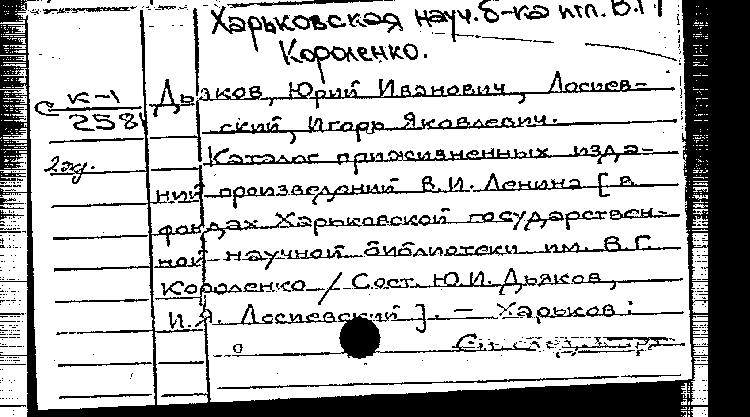 Харьковская науч. б-ка им. В.Г.
Короленко.
С К-1
258
2 экз.
Дьяков, Юрий Иванович, Лосиев-
ский, Игорь Яковлевич.
Каталог прижизненных изда-
ний произведений В.И. Ленина [в
фондах Харьковской государствен-
ной научной библиотеки им. В.Г.
Короленко / Сост. Ю.И. Дьяков,
И.Я. Лосиевский]. — Харьков:
См. след. карт.